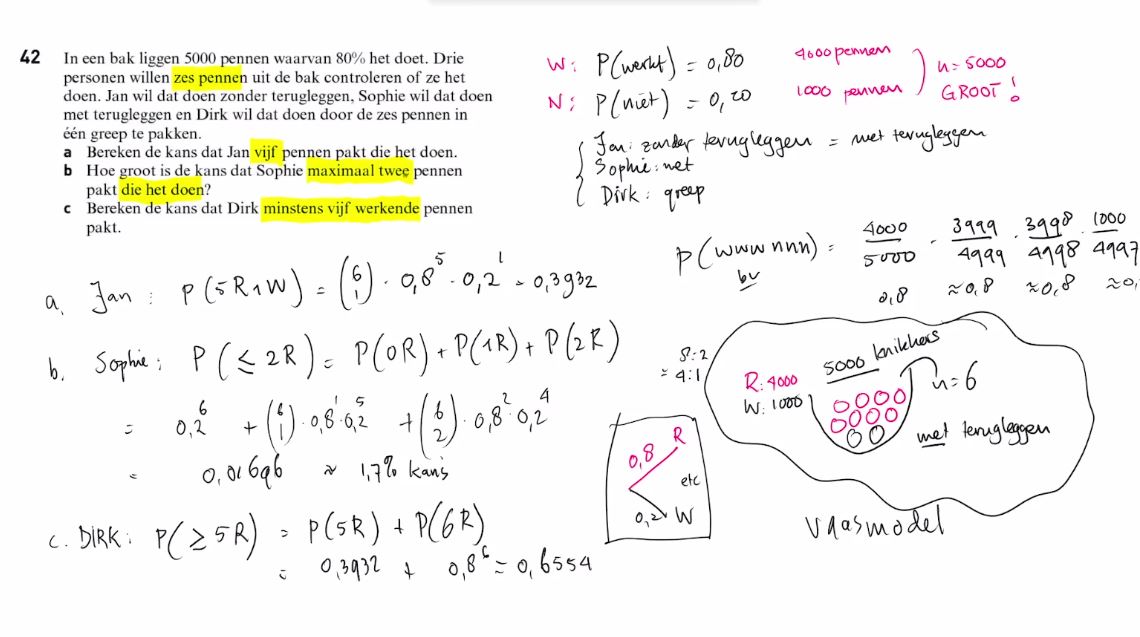 42 In een bak liggen 5000 pennen waarvan 80% het doet. Drie
personen willen zes pennen uit de bak controleren of ze het
doen. Jan wil dat doen zonder terugleggen, Sophie wil dat doen
met terugleggen en Dirk wil dat doen door de zes pennen in
één greep te pakken.
a Bereken de kans dat Jan vijf pennen pakt die het doen.
b Hoe groot is de kans dat Sophie maximaal twee pennen
pakt die het doen?
c Bereken de kans dat Dirk minstens vijf werkende pennen
pakt.
W: P(werkt) = 0,80 4000 pennen
N: P(niet) = 0,20 1000 pennen
n = 5000
GROOT!
Jan: zonder terugleggen = met terugleggen
Sophie: met
Dirk: greep
P(wwwnnn) = 4000/5000 · 3999/4999 · 3998/4998 · 1000/4997
bv
0,8 ≈0,8 ≈0,8 ≈0,
a. Jan: P(5R1W) = (6 1) · 0,8^5 · 0,2^1 = 0,3932
b. Sophie: P(≤ 2R) = P(0R) + P(1R) + P(2R)
= 0,2^6 + (6 1) · 0,8^1 · 0,2^5 + (6 2) · 0,8^2 · 0,2^4
= 0,01696 ≈ 1,7% kans
c. DIRK: P(≥ 5R) = P(5R) + P(6R)
= 0,3932 + 0,8^6 = 0,6554
8:2
= 4:1
R: 4000
W: 1000
5000 knikkers
n = 6
met terugleggen
0,8 R
etc
0,2 W
Vaasmodel